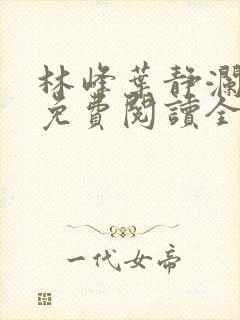 林峰葉静瀾
免費閱讀全
一代女帝